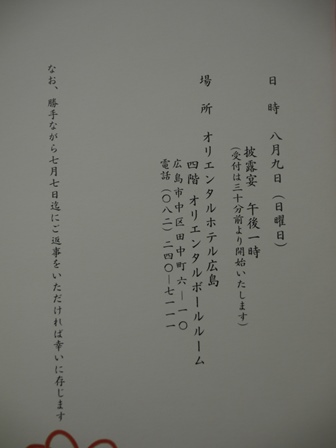 日時 八月九日(日曜日)
披露宴 午後一時
(受付は三十分前より開始いたします)
場所 オリエンタルホテル広島
四階 オリエンタルボールルーム
広島市中区田中町六―一〇
電話(〇八二)二四〇―七一一一
なお、勝手ながら七月七日迄にご返事をいただければ幸いに存じます